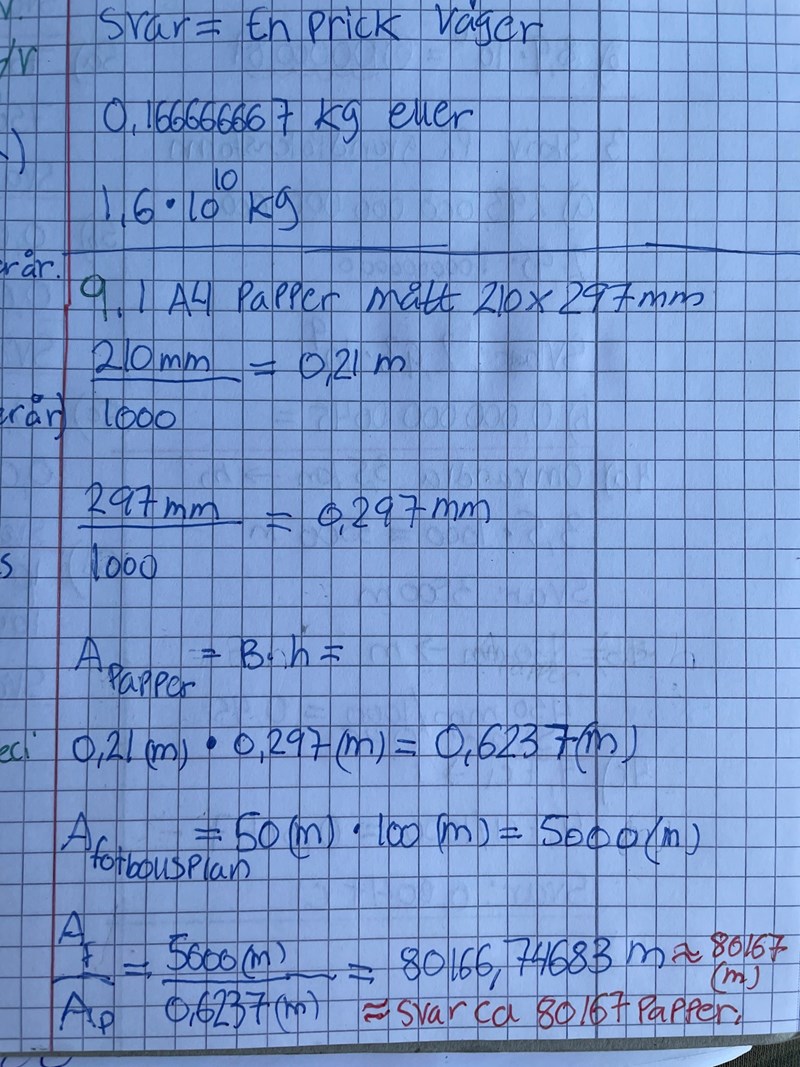 Svar = En prick väger
0,166666667 kg eller
1,6 · 10^10 kg
rår.
9.1 A4 Papper mått 210 x 297 mm
210 mm / 1000 = 0,21 m
rår)
297 mm / 1000 = 0,297 mm
s
A Papper = B · h =
eci 0,21 (m) · 0,297 (m) = 0,6237 (m)
A fotbollsplan = 50 (m) · 100 (m) = 5000 (m)
A f / A p = 5000 (m) / 0,6237 (m) = 80166,74683 m ≈ 80167 (m)
≈ svar ca 80167 Papper.